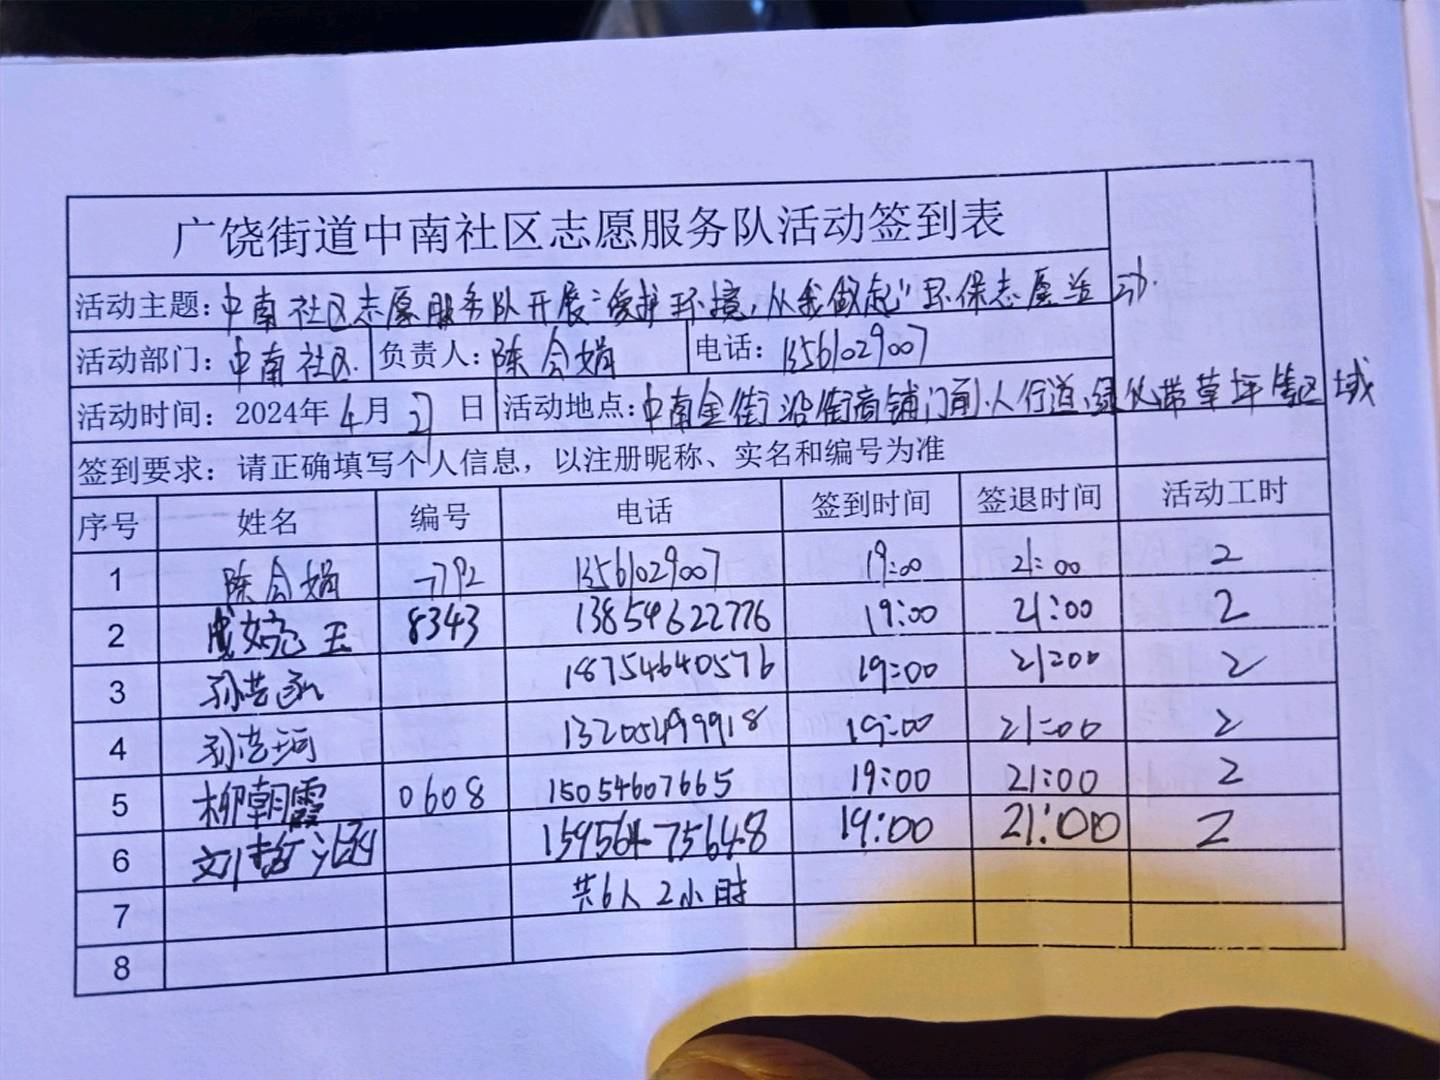 广饶街道中南社区志愿服务队活动签到表
活动主题：中南社区志愿服务队开展“爱护环境，从我做起”环保志愿活动.
活动部门：中南社区. 负责人：陈会娟 电话：13561029007
活动时间：2024年4月27日 活动地点：中南金街沿街商铺门前、人行道、绿化带草坪等区域
签到要求：请正确填写个人信息，以注册昵称、实名和编号为准
序号 姓名 编号 电话 签到时间 签退时间 活动工时
1 陈会娟 7792 13561029007 19:00 21:00 2
2 8343 13854622776 19:00 21:00 2
3 18754640576 19:00 21:00 2
4 13205499918 19:00 21:00 2
5 柳朝霞 0608 15054607665 19:00 21:00 2
6 15956475648 19:00 21:00 2
7 共6人2小时
8